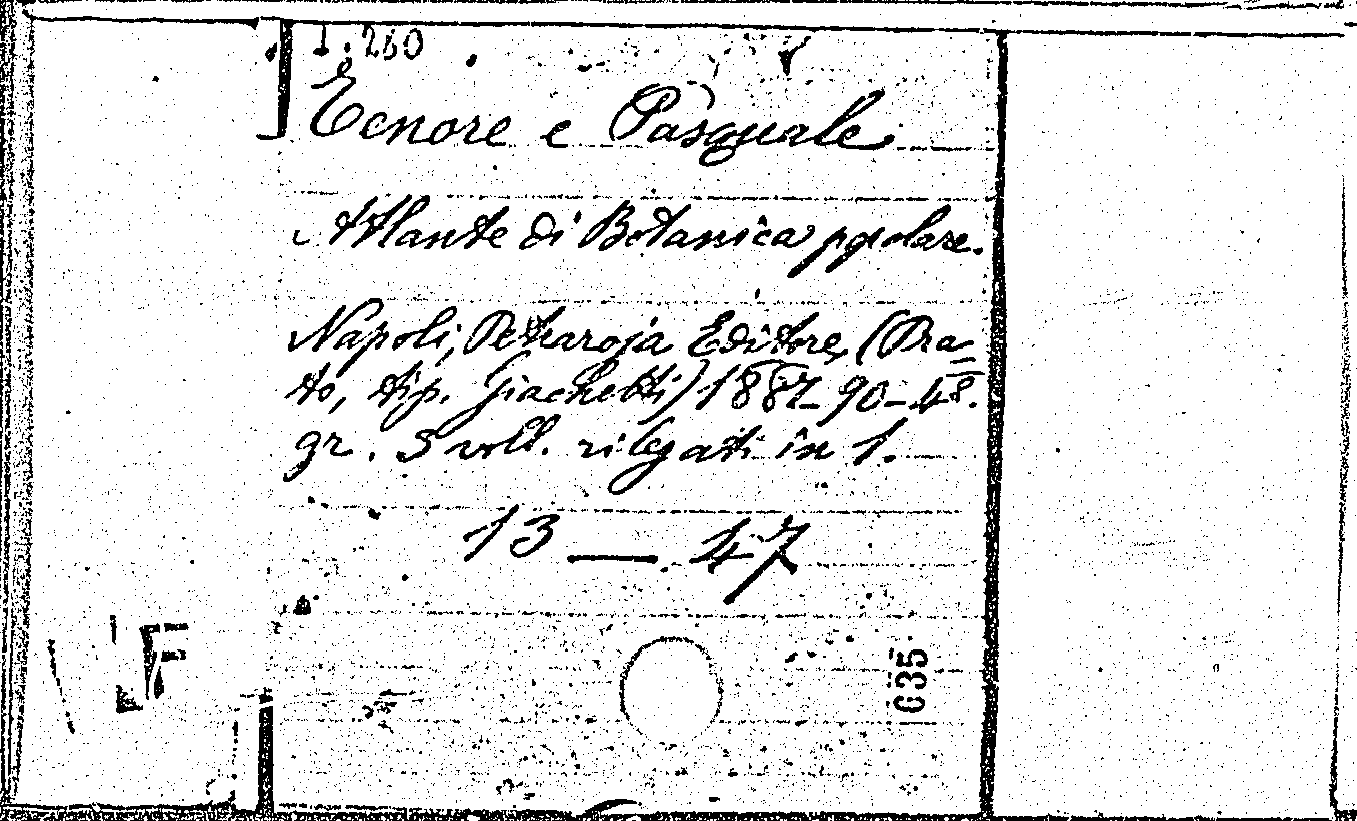 1.260
Tenore e Pasquale
Atlante di Botanica popolare.
Napoli, Petraroja Editore, (Pra=
to, tip. Giachetti) 1887-90-4º.
gr. 5 voll. rilegati in 1.
13 — 47
035